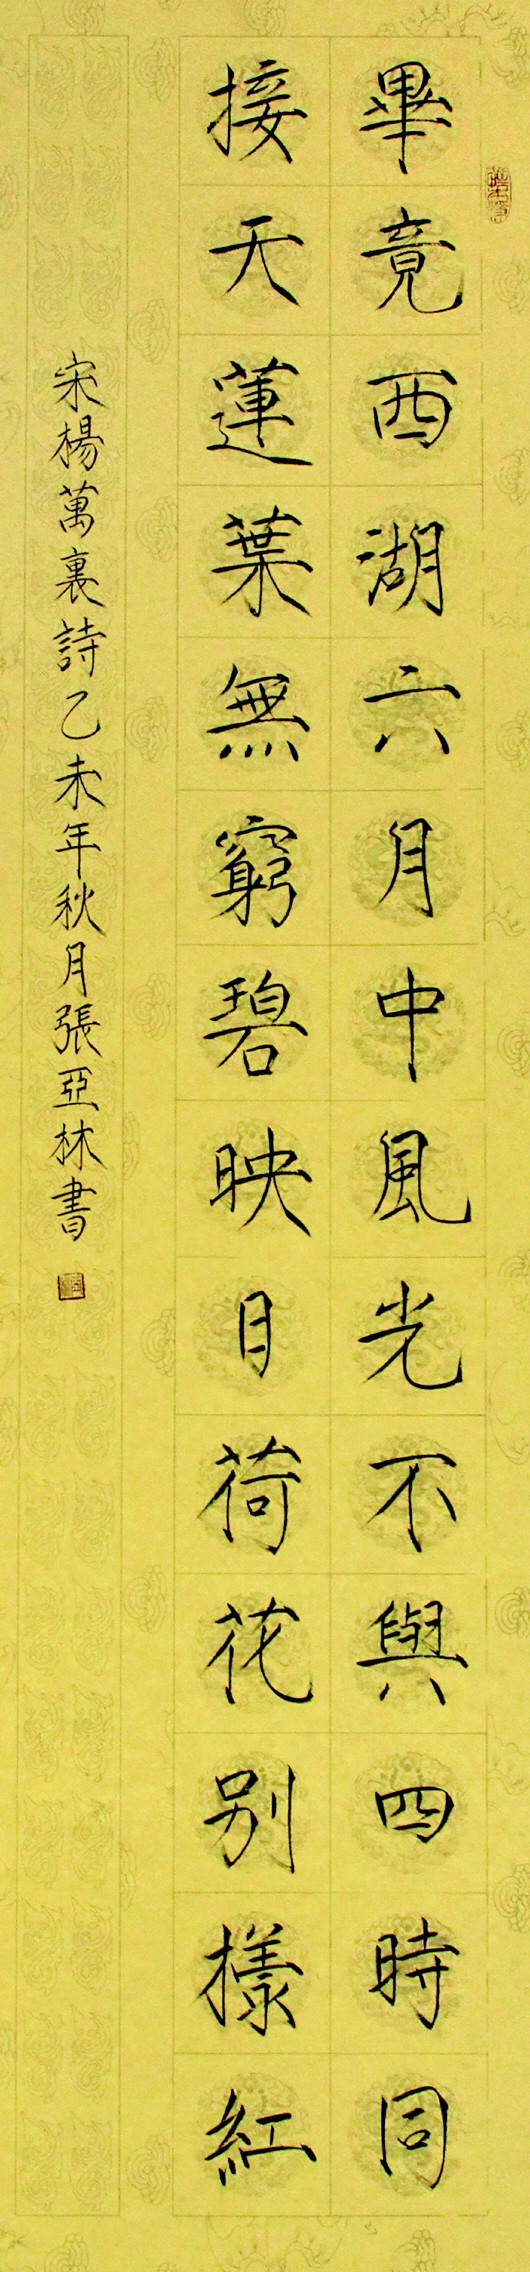 畢竟西湖六月中風光不與四時同
接天蓮葉無窮碧映日荷花别樣紅
宋楊萬裏詩乙未年秋月張亞林書